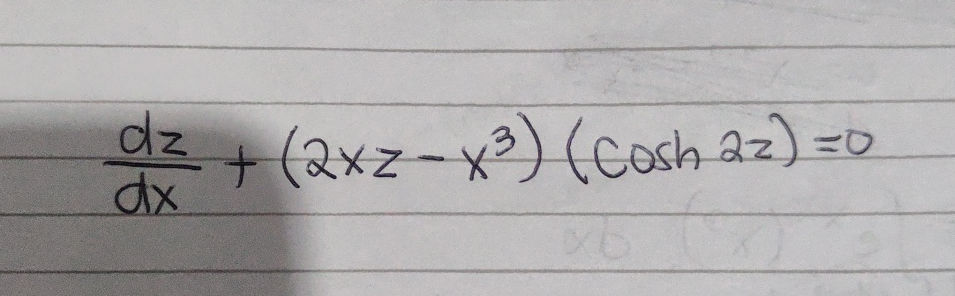 dz/dx + (2xz - x³) (cosh 2z) = 0